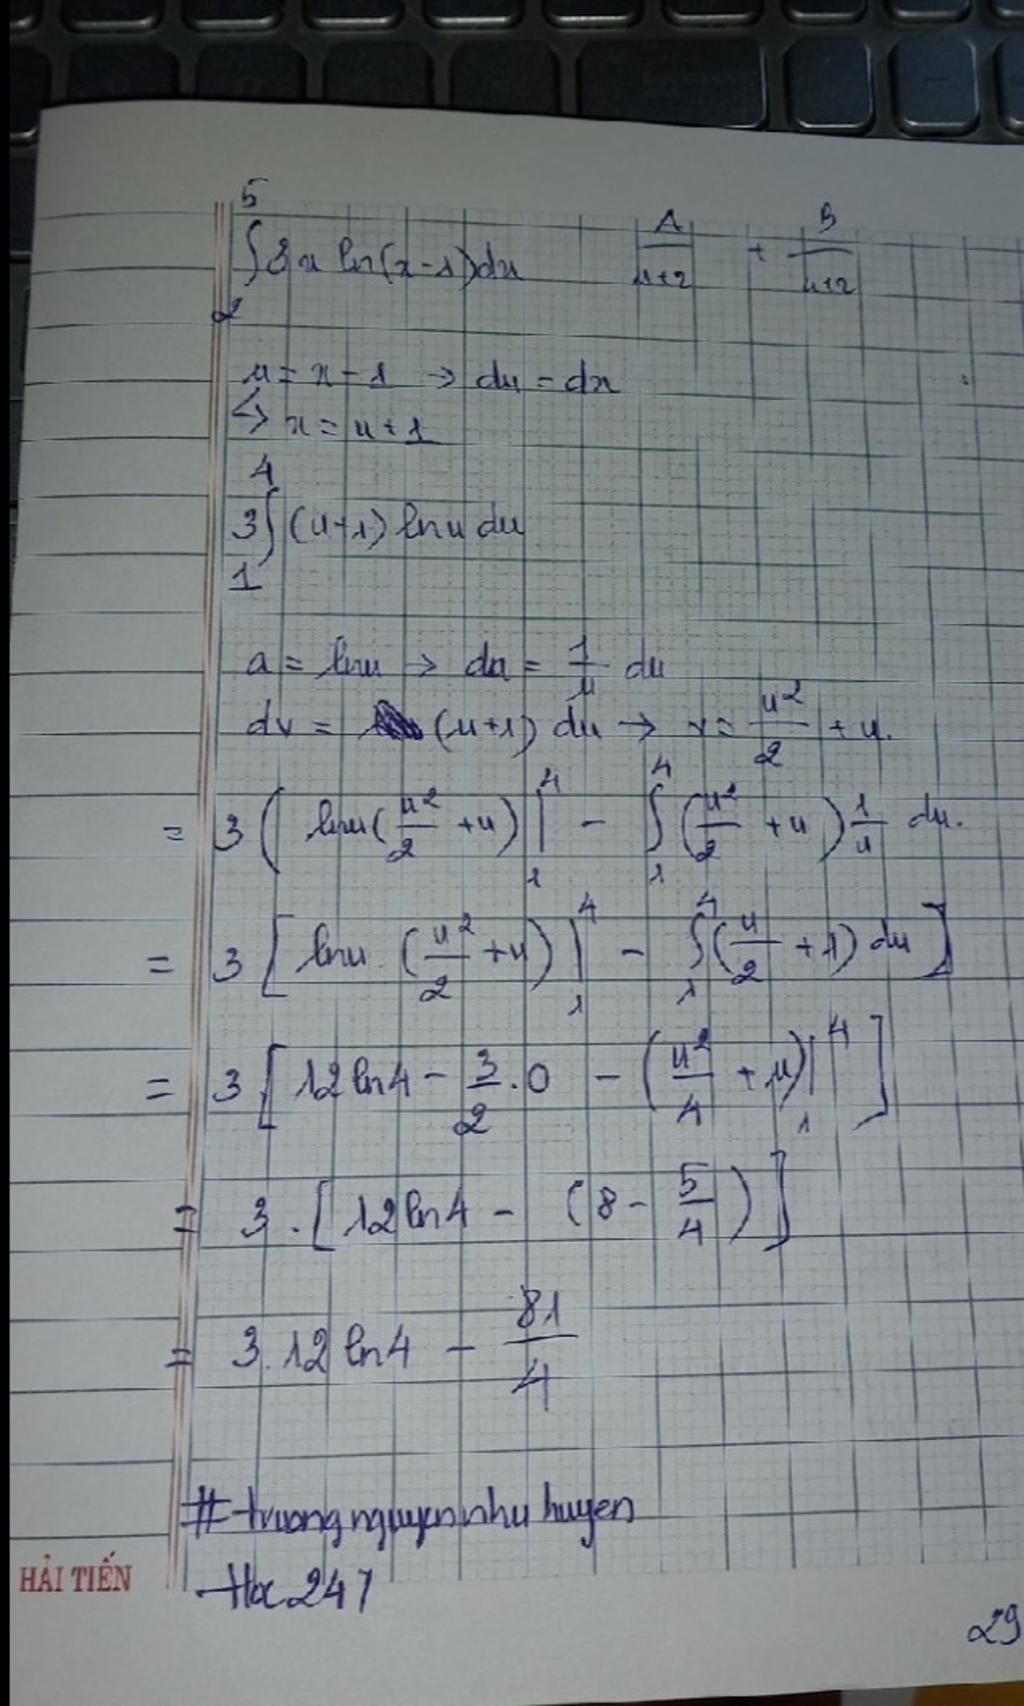 ∫₂⁵ 3x ln(x-1)dx   A/(x+2) + B/(x+2)
u = x - 1 → du = dx
↳ x = u + 1
3∫₁⁴ (u+1) ln u du
a = ln u → da = 1/u du
dv = (u+1) du → v = u²/2 + u.
= 3 ( ln u (u²/2 + u) |₁⁴ - ∫₁⁴ (u²/2 + u) 1/u du.
= 3 [ ln u. (u²/2 + u) |₁⁴ - ∫₁⁴ (u/2 + 1) du ]
= 3 [ 12 ln 4 - 3/2 . 0 - (u²/4 + u) |₁⁴ ]
= 3 . [ 12 ln 4 - (8 - 5/4) ]
= 3. 12 ln 4 - 81/4
# truongnguyennhuhuyen
Hoc247
HẢI TIẾN
29